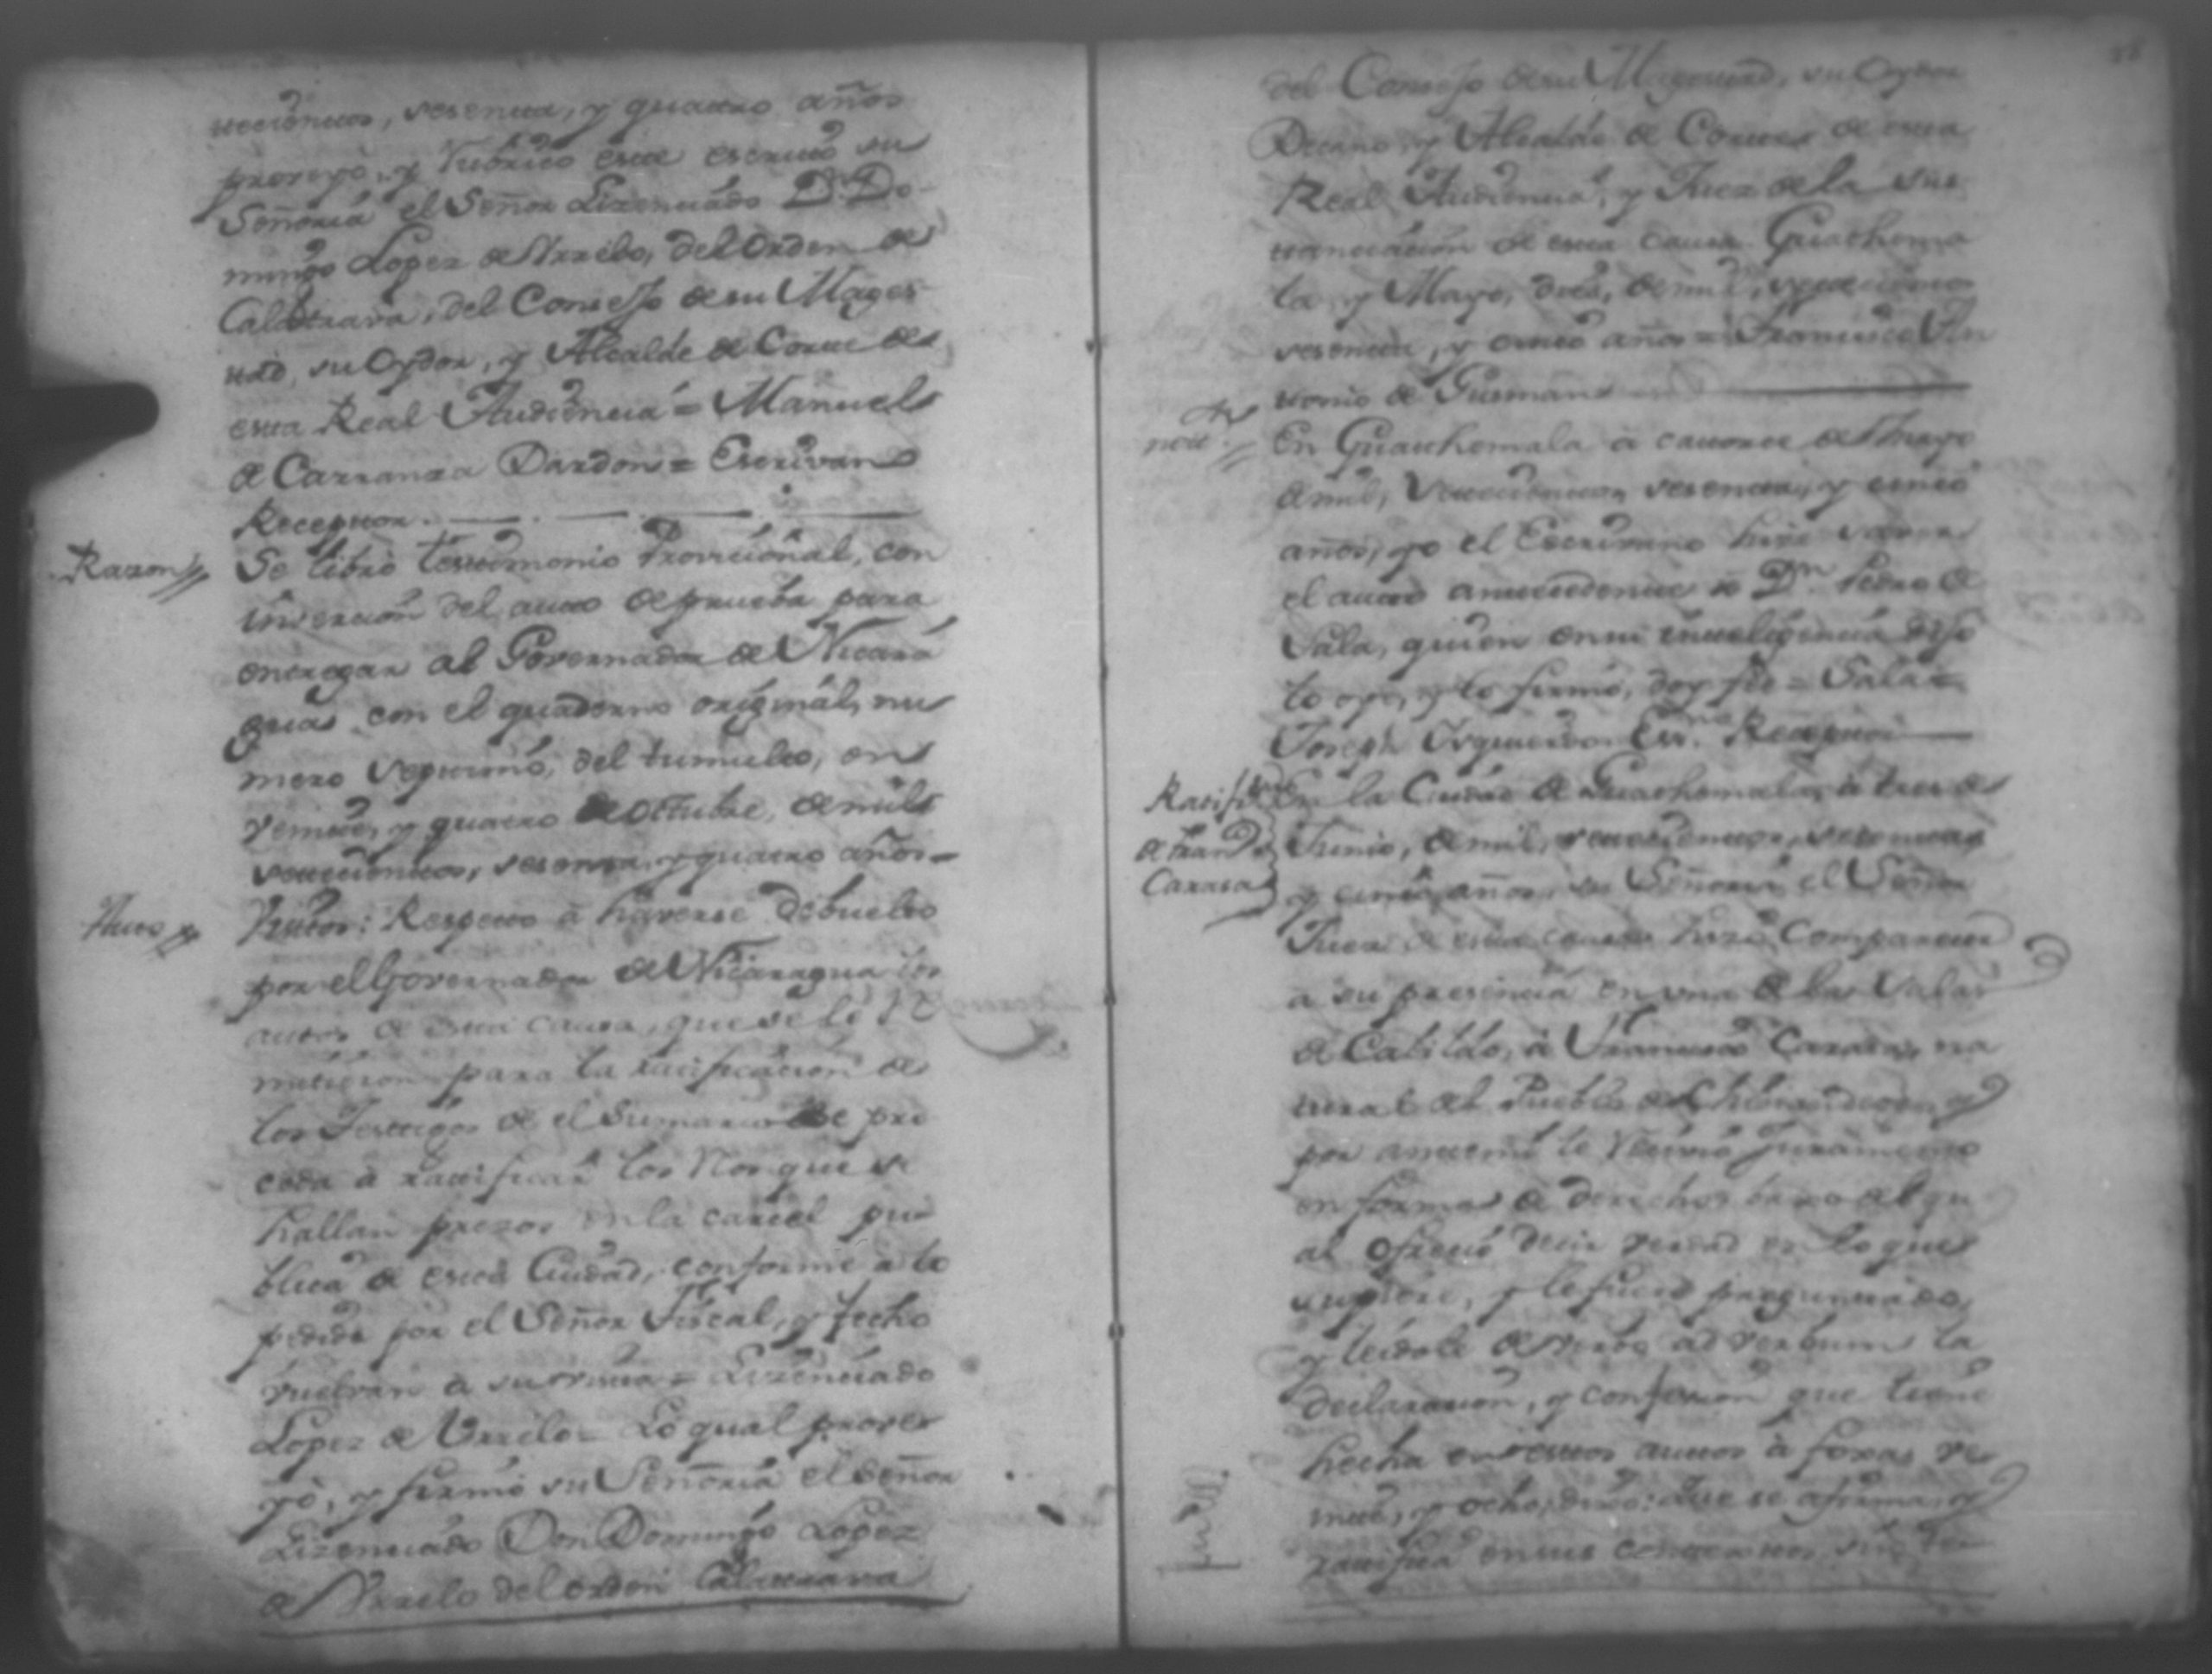 tecientos, sesenta, y quatro años
proveyó, y rubricó este escrito su
Señoria el Señor Lizenciado Dn. Do-
mingo Lopez de Urrelo, del Orden de
Calatrava, del Consejo de su Mages-
tad, su Oydor, y Alcalde de Corte de
esta Real Audiencia = Manuel
de Carranza Dardon = Escrivano
Receptor.
Razon
Se libró testimonio Provicional, con
incercion del auto de prueba para
entregar al Governador de Nicara
guas con el quaderno original, nu
mero septimo, del tumulto, en
veinte, y quatro de Octubre, de mil
setecientos, sesenta, y quatro años =
Auto
Vistos: Respecto à haverse debuelto
por el Governador de Nicaragua los
autos de esta causa, que se le re
mitieron para la ratificacion de
los Testigos de el Sumario se pro
ceda à ratificar los Reos que se
hallan prezos en la carcel pu-
blica de esta Ciudad, conforme a lo
pedido por el Señor Fiscal, y fecho
vuelvan à su vista = Lizenciado
Lopez de Urrelo = Lo qual prove
yò, y firmó su Señoria el Señor
Lizenciado Don Domingo Lopez
de Urrelo del orden Calatrava
del Consejo de su Magestad, su Oydor
Decano, y Alcalde de Corte de esta
Real Audiencia, y Juez de la sus
tanciacion de esta causa. Guathema
la, y Mayo, dies, de mil, setecientos
sesenta, y cinco años = Francisco An
tonio de Gusman
Otra
not.
En Guathemala à catorce de Mayo
de mil, setecientos, sesenta, y cinco
años, yo el Escrivano hize saver
el auto antecedente à Dn. Pedro de
Sala, quien en su inteligencia dijo
lo oye, y lo firmó, doy fee = Sala =
Joseph Ysquierdo Essno. Receptor
Ratifon.
de Franco.
Carasa
En la Ciudad de Guathemala, à tres de
Junio, de mil, setecientos, sesenta
y cinco años, su Señoria el Señor
Juez de esta causa hizo Comparecer
a su presencia en una de las Salas
de Cabildo, à Francisco Carasa, na
tural del Pueblo de Chinandega, y
por ante mi le recivió Juramento
en forma de derecho, baxo del qu
al ofreció decir verdad en lo que
supiere, y le fuere preguntado,
y leidole de verbo ad verbum la
declaracion, y confecion que tiene
hecha en estos autos à foxas ve
inte, y ocho, dixo: Que se afirma, y
ratifica en sus contextos, sin te